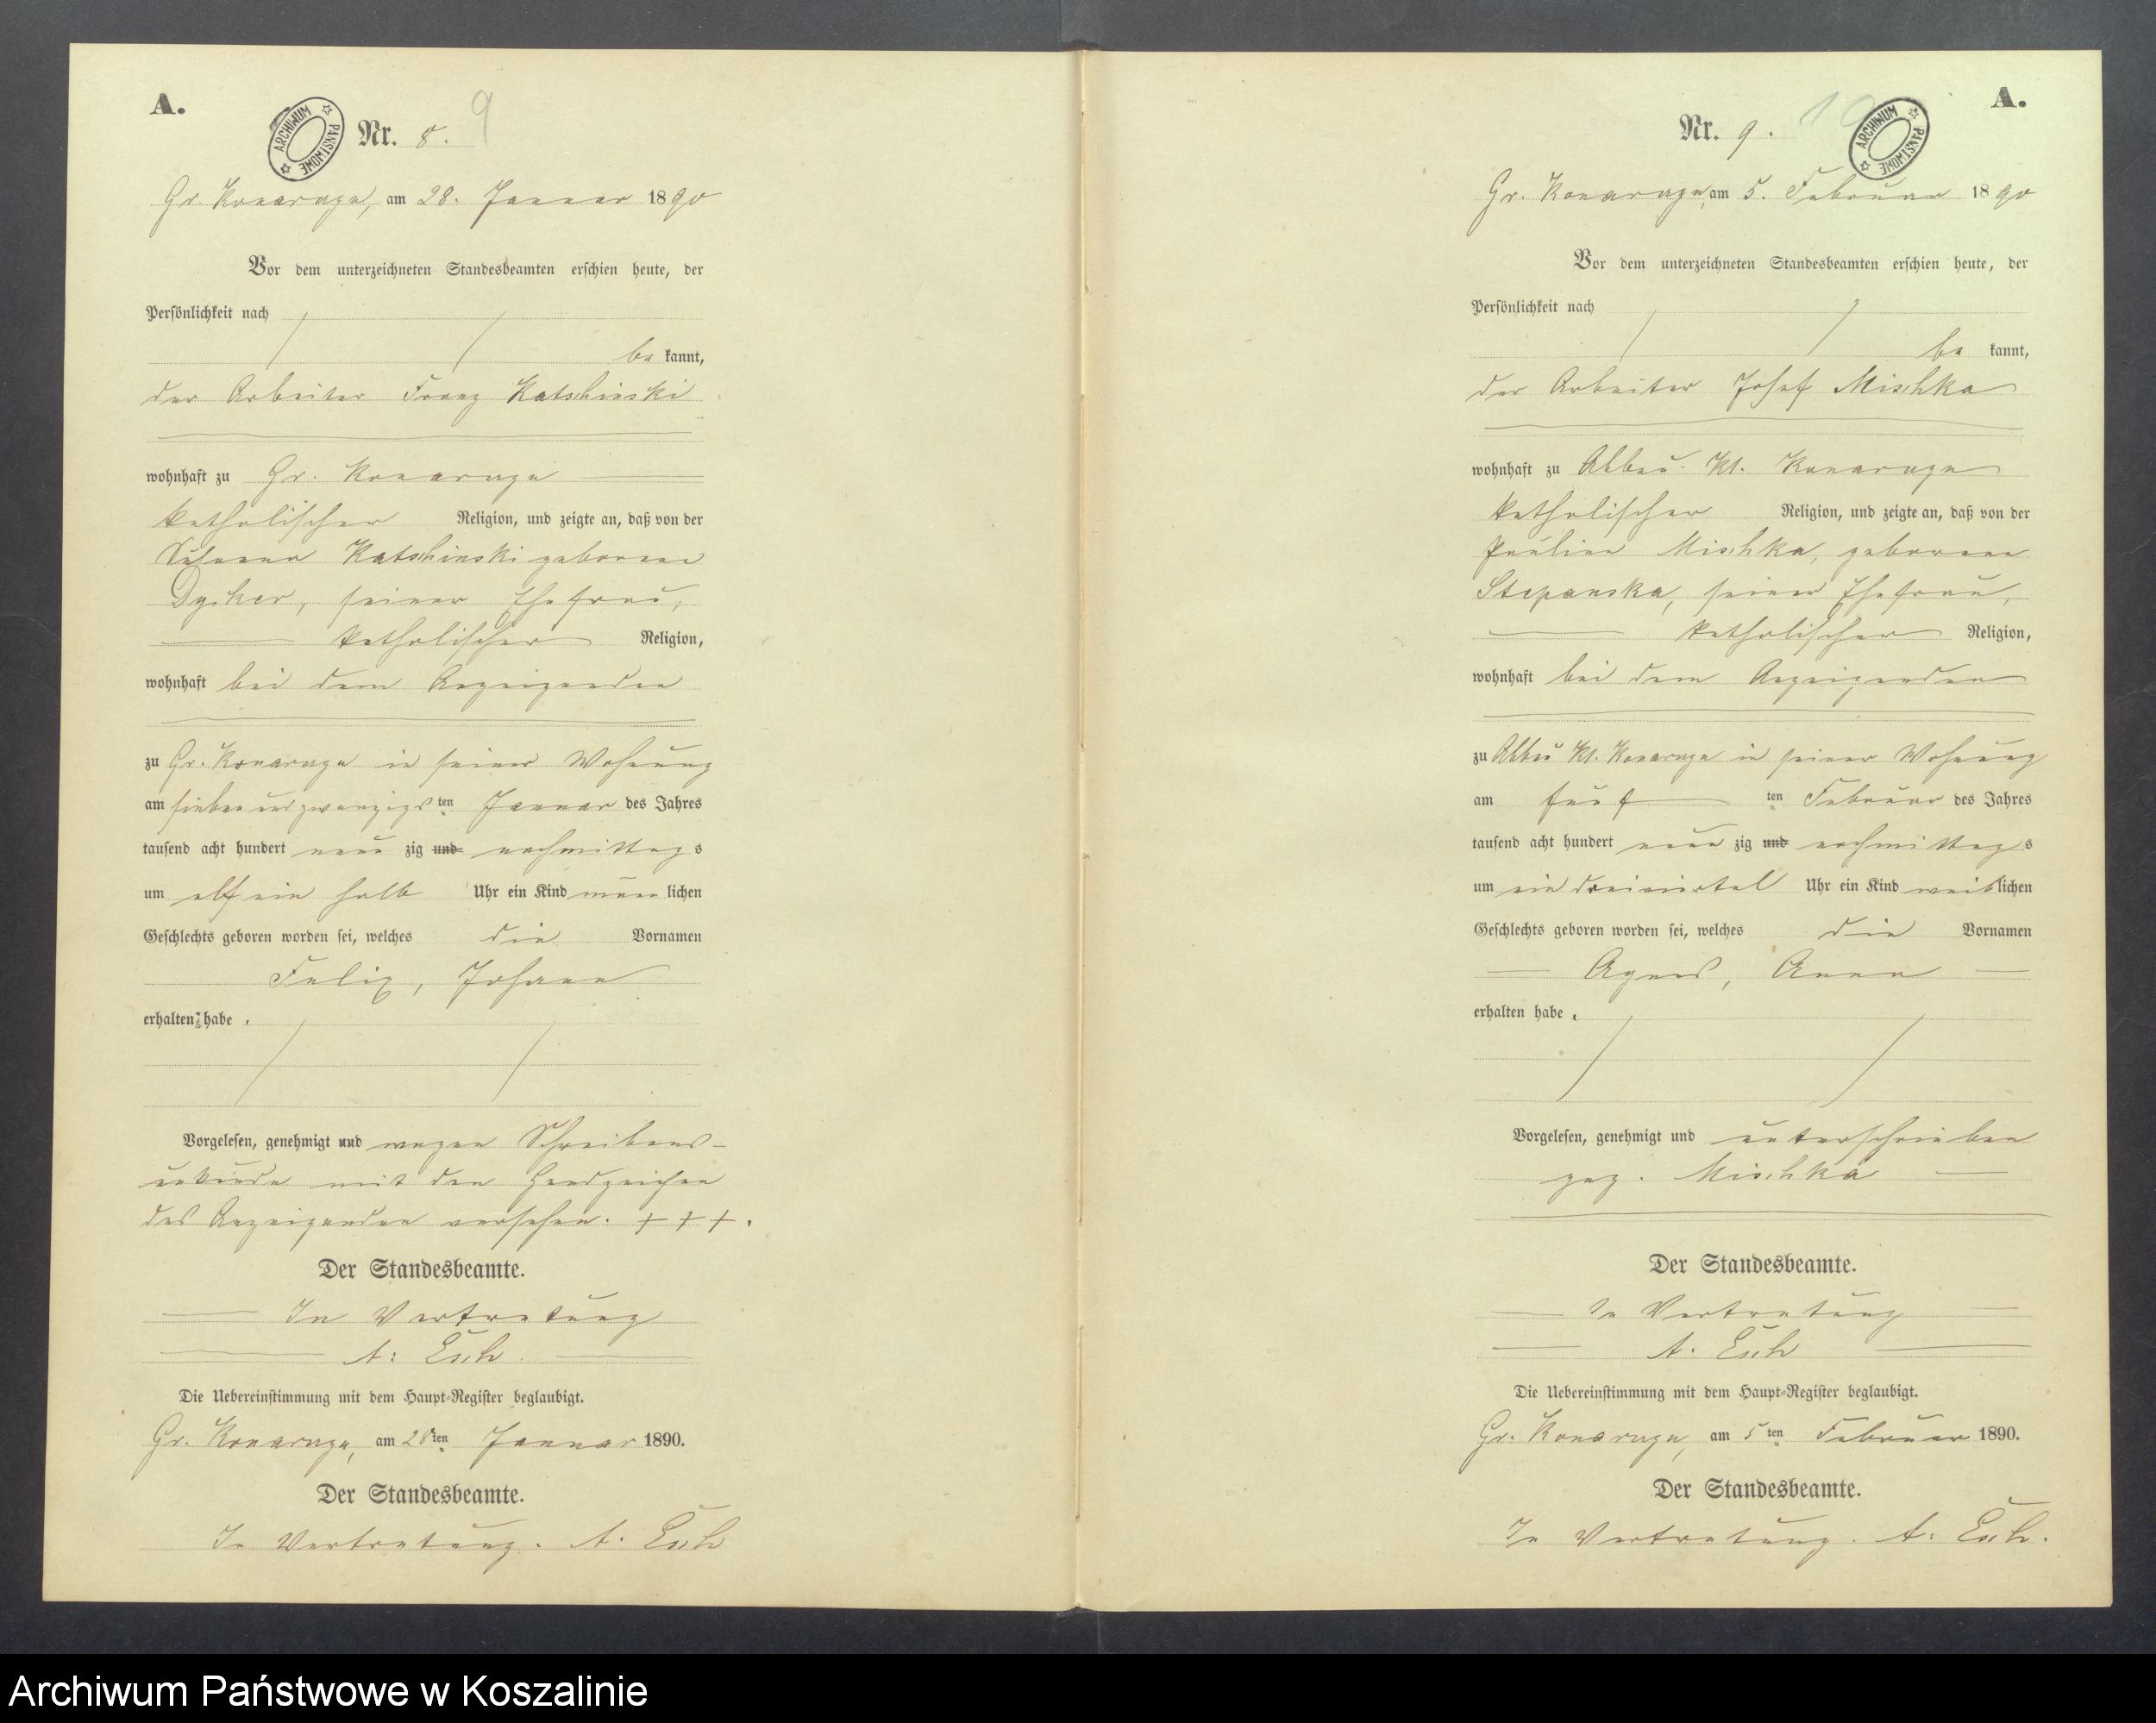 A.
ARCHIWUM PAŃSTWOWE
Nr. 8. 9
Gr. Konarzyn, am 28. Januar 1890
Vor dem unterzeichneten Standesbeamten erschien heute, der
Persönlichkeit nach
be kannt,
der Arbeiter Franz Katschinski
wohnhaft zu Gr. Konarzyn
katholischer Religion, und zeigte an, daß von der
Susanna Katschinski geborene
seiner Ehefrau,
katholischer Religion,
wohnhaft bei dem Anzeigenden
zu Gr. Konarzyn in seiner Wohnung
am siebenundzwanzigsten Januar des Jahres
tausend acht hundert neun zig und nachmittags
um elf ein halb Uhr ein Kind männlichen
Geschlechts geboren worden sei, welches die Vornamen
Felix, Johann
erhalten habe.
Vorgelesen, genehmigt und wegen Schreibens-
unkunde mit den Handzeichen
des Anzeigenden versehen. +++.
Der Standesbeamte.
In Vertretung
A. Esch.
Die Uebereinstimmung mit dem Haupt-Register beglaubigt.
Gr. Konarzyn, am 28ten Januar 1890.
Der Standesbeamte.
In Vertretung. A. Esch
A.
ARCHIWUM PAŃSTWOWE
Nr. 9. 10
Gr. Konarzyn, am 5. Februar 1890
Vor dem unterzeichneten Standesbeamten erschien heute, der
Persönlichkeit nach
be kannt,
der Arbeiter Josef Mischka
wohnhaft zu Abbau Kl. Konarzyn
katholischer Religion, und zeigte an, daß von der
Pauline Mischka, geborene
Stepanska, seiner Ehefrau,
katholischer Religion,
wohnhaft bei dem Anzeigenden
zu Abbau Kl. Konarzyn in seiner Wohnung
am fünf ten Februar des Jahres
tausend acht hundert neun zig und nachmittags
um ein dreiviertel Uhr ein Kind weiblichen
Geschlechts geboren worden sei, welches die Vornamen
Agnes, Anna
erhalten habe.
Vorgelesen, genehmigt und unterschrieben
gez. Mischka
Der Standesbeamte.
In Vertretung
A. Esch
Die Uebereinstimmung mit dem Haupt-Register beglaubigt.
Gr. Konarzyn, am 5ten Februar 1890.
Der Standesbeamte.
In Vertretung. A. Esch.
Archiwum Państwowe w Koszalinie